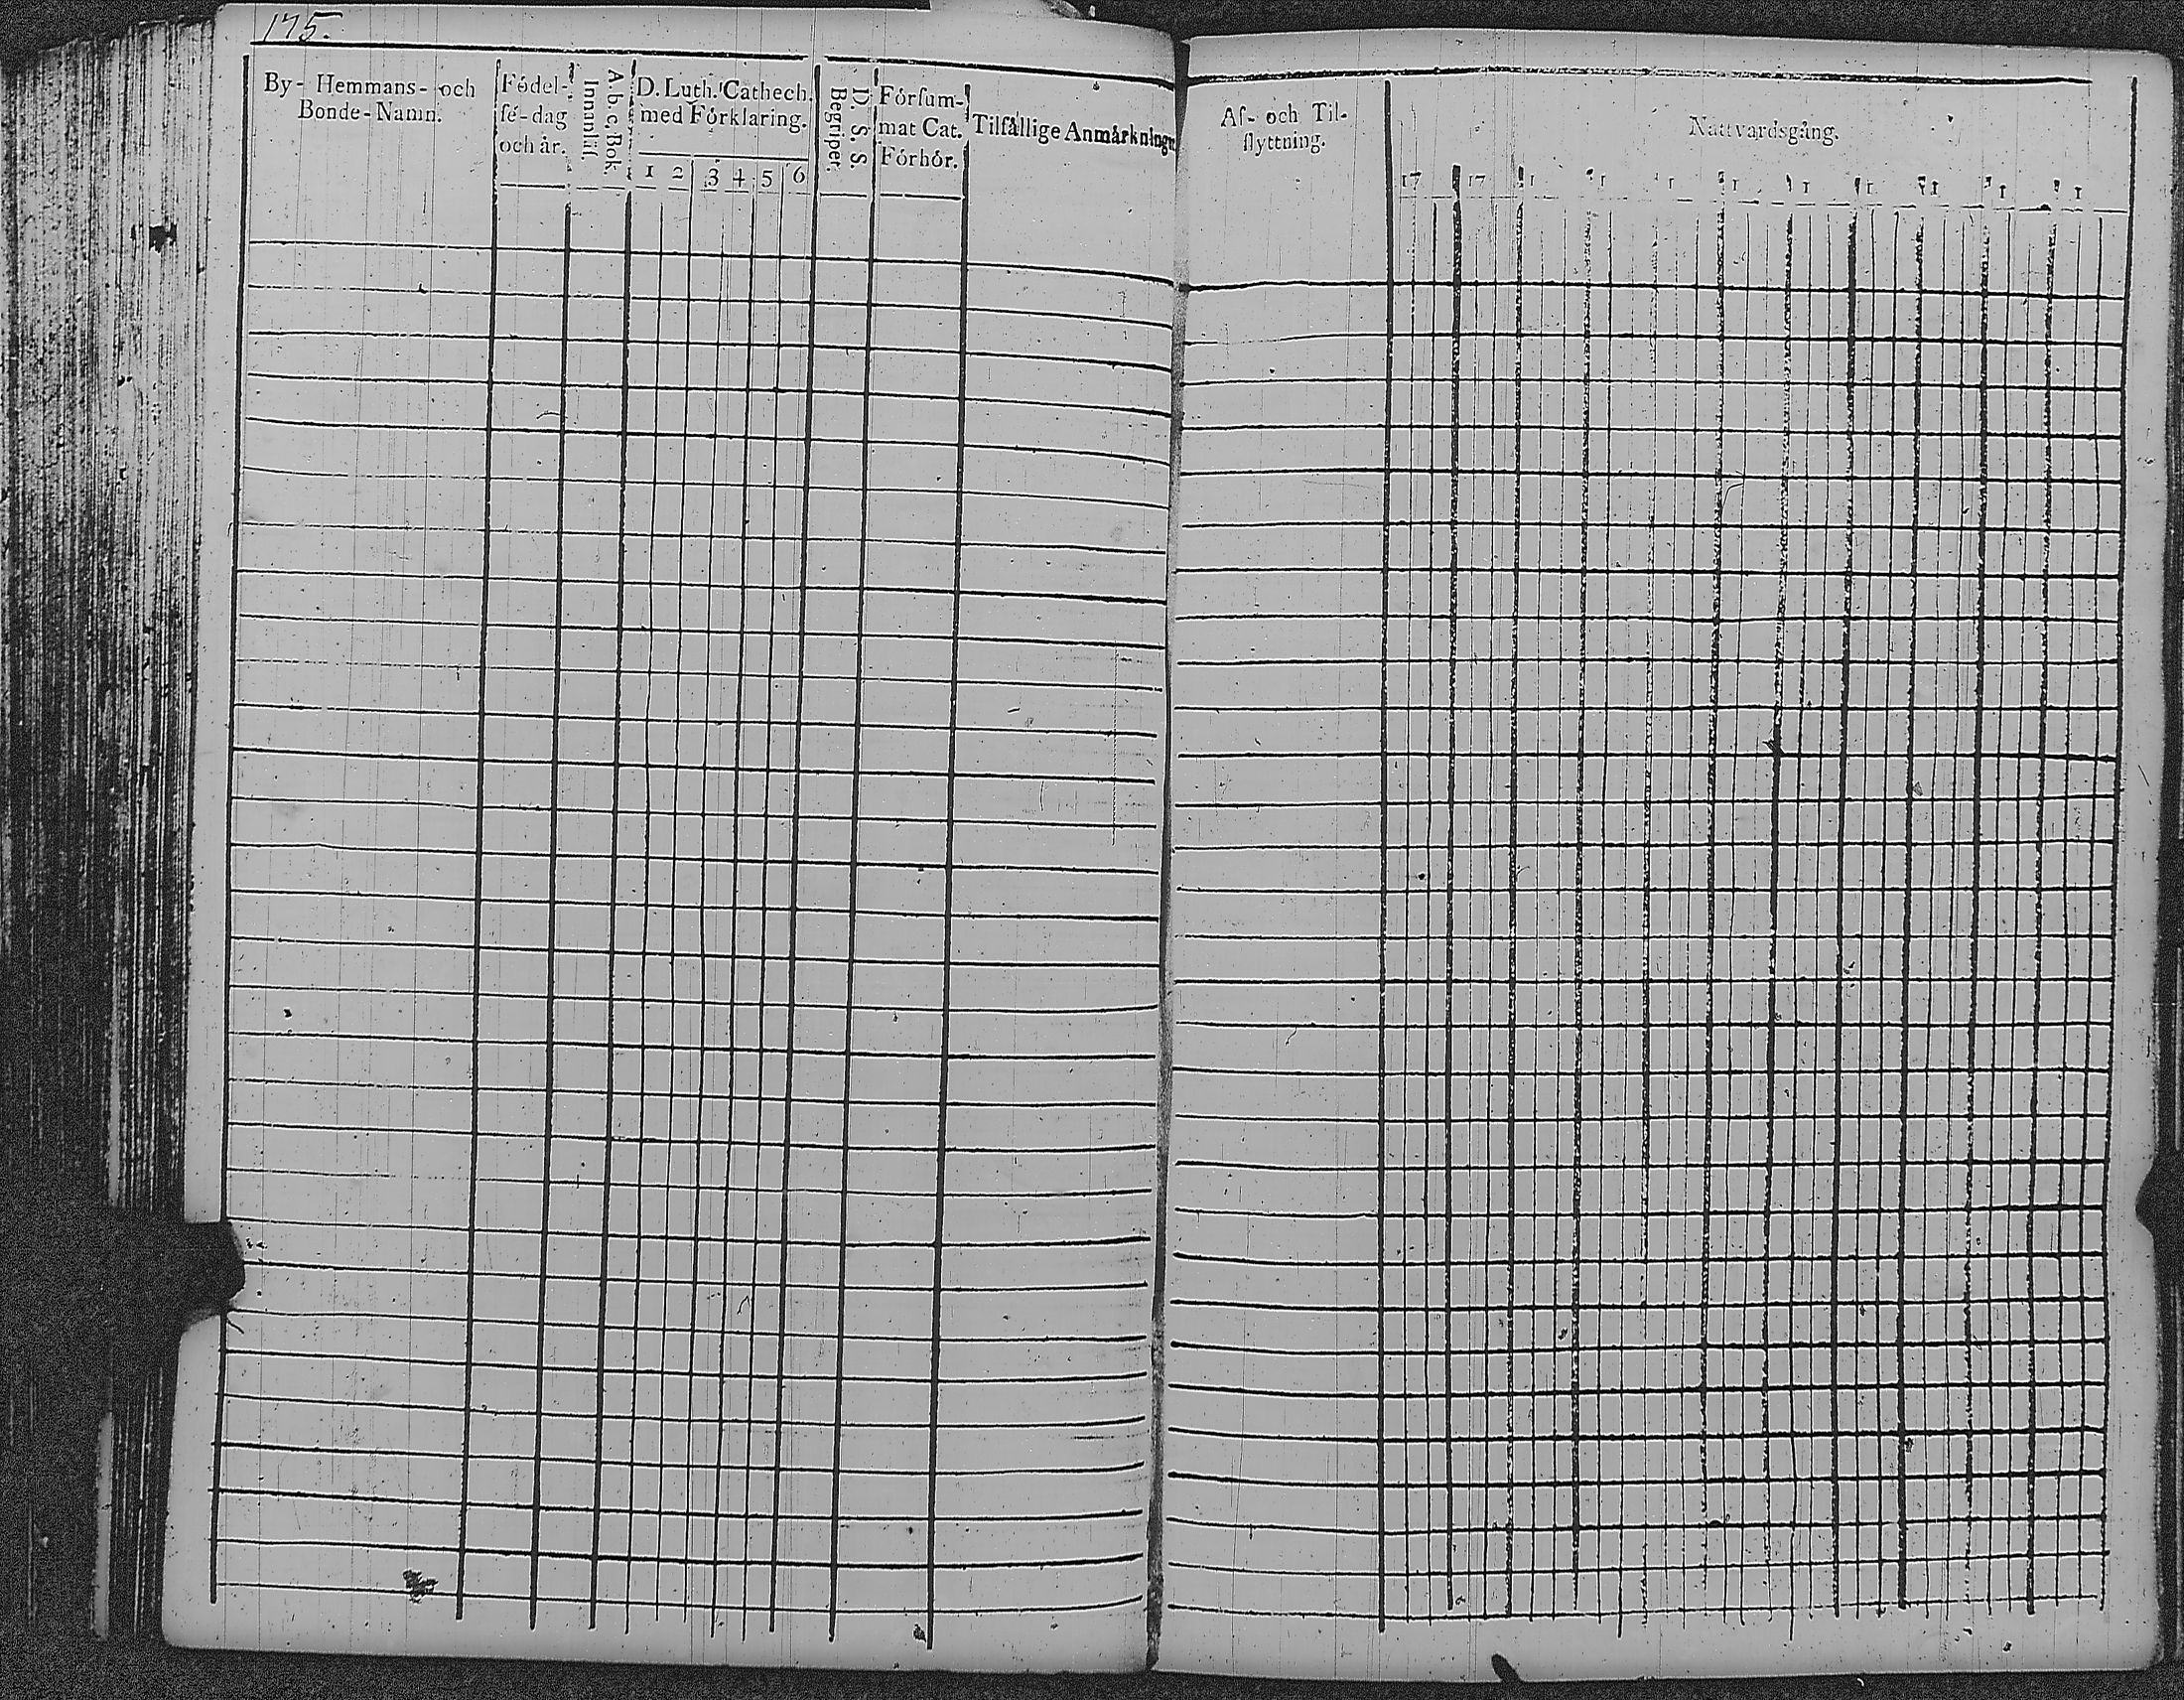 175.
By- Hemmans- och
Bonde-Namn.
Fódel-
sé-dag
och år.
Innanläs.
A. b. c. Bok.
D. Luth. Cathech.
med Fórklaring.
1 2 3 4 5 6
Begripet.
D. S. S.
Fórsum-
mat Cat.
Fórhór.
Tilfällige Anmårkningar
Af- och Til-
flyttning.
Nattvardsgång.
17 17 1 1 1 1 1 1 1 1 1